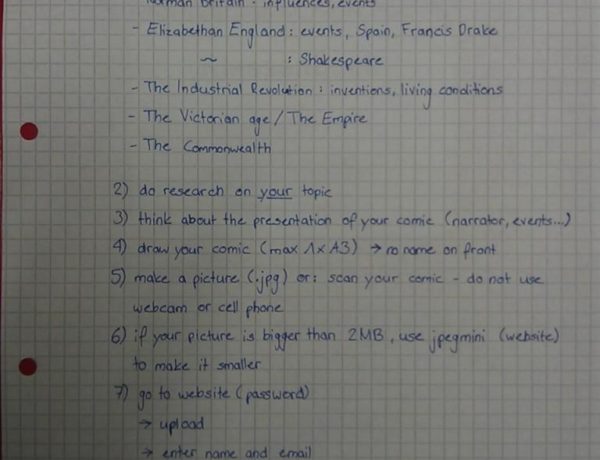 Norman Britain : influences, events
- Elizabethan England : events, Spain, Francis Drake
~ : Shakespeare
- The Industrial Revolution : inventions, living conditions
- The Victorian age / The Empire
- The Commonwealth
2) do research on your topic
3) think about the presentation of your comic (narrator, events...)
4) draw your comic (max 1 x A3) → no name on front
5) make a picture (.jpg) or: scan your comic - do not use
webcam or cell phone
6) if your picture is bigger than 2MB, use jpegmini (website)
to make it smaller
7) go to website (password)
→ upload
→ enter name and email